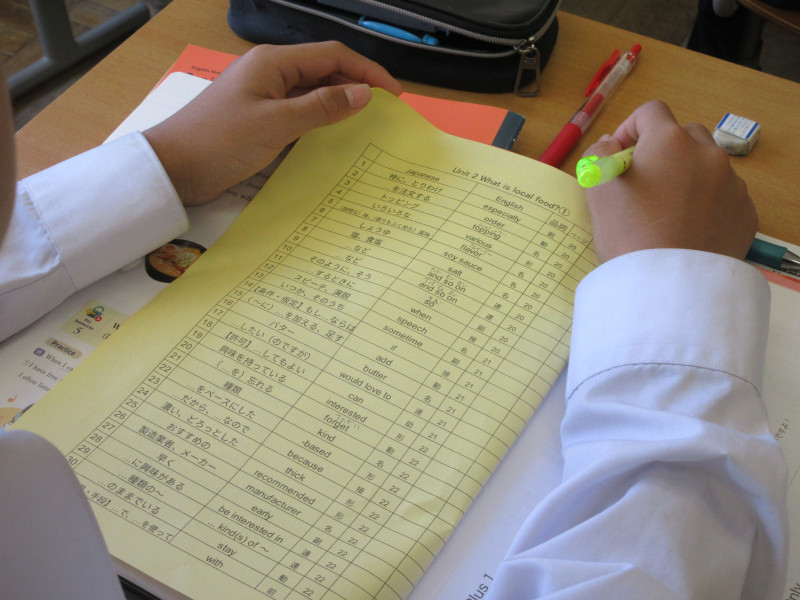 Unit 2 What is local food?①
Japanese English 品詞 ページ
1 特に、とりわけ especially 副 20
2 を注文する order 動 20
3 トッピング topping 名 20
4 いろいろな various 形 20
5 味、風味 flavor 名 20
6 しょうゆ soy sauce 名 20
7 塩、食塩 salt 名 20
8 など and so on 連 20
9 など and so on 連 20
10 そのように、そう so 副 20
11 するときに when 接 20
12 スピーチ、演説 speech 名 21
13 いつか、そのうち sometime 副 21
14 【条件・仮定】もし…ならば if 接 21
15 (〜に)…を加える、足す add 動 21
16 バター butter 名 21
17 …したい(のですが) would love to 連 21
18 【許可】…してもよい can 助 21
19 興味を持っている interested 形 21
20 (…を)忘れる forget 動 22
21 種類 kind 名 22
22 …をベースにした -based 形 22
23 だから、…なので because 接 22
24 濃い、どろっとした thick 形 22
25 おすすめの recommended 形 22
26 製造業者、メーカー manufacturer 名 22
27 早く early 副 22
28 …に興味がある be interested in 連 22
29 …種類の〜 … kind(s) of 〜 連 22
30 …のままでいる stay 動 22
・手段】…で、…を使って with 前
Practice
When I
I have
I often
5
English
plus 1